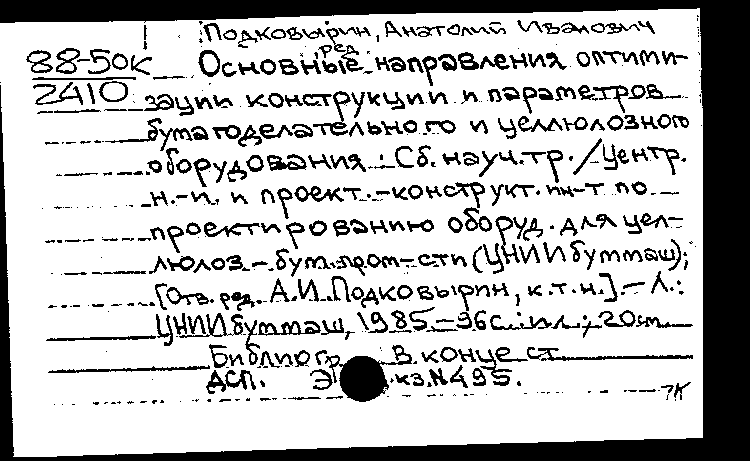 Подковырин, Анатолий Иванович
ред.
88-50к Основные направления оптими-
2410 зации конструкции и параметров
бумагоделательного и целлюлозного
оборудования : Сб. науч. тр. / Центр.
н.-и. и проект.-конструкт. ин-т по
проектированию оборуд. для цел-
люлоз.-бум. пром-сти (ЦНИИбуммаш);
[Отв. ред. А.И. Подковырин, к.т.н.].- Л.:
ЦНИИбуммаш, 1985.-96с.: ил.; 20см.
Библиогр. в конце ст.
ДСП. Экз.N495.